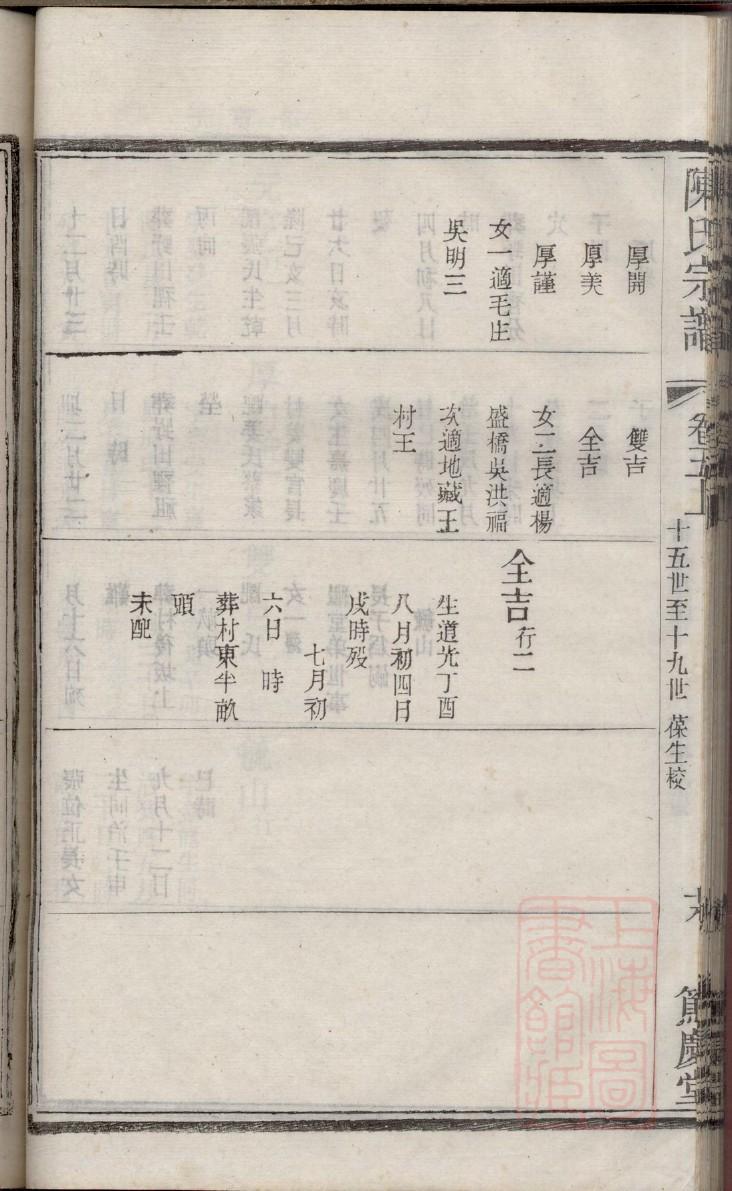 陳氏宗譜
卷五上
十五世至十九世 葆生校
篤慶堂
厚開
厚美
厚謹
女一適毛庄
吳明三
雙吉
全吉
女二長適楊
盛橋吳洪福
次適地藏王
村王
全吉行二
生道光丁酉
八月初四日
戌時歿
七月初
六日 時
葬村東半畝
頭
未配
上海圖
書館藏